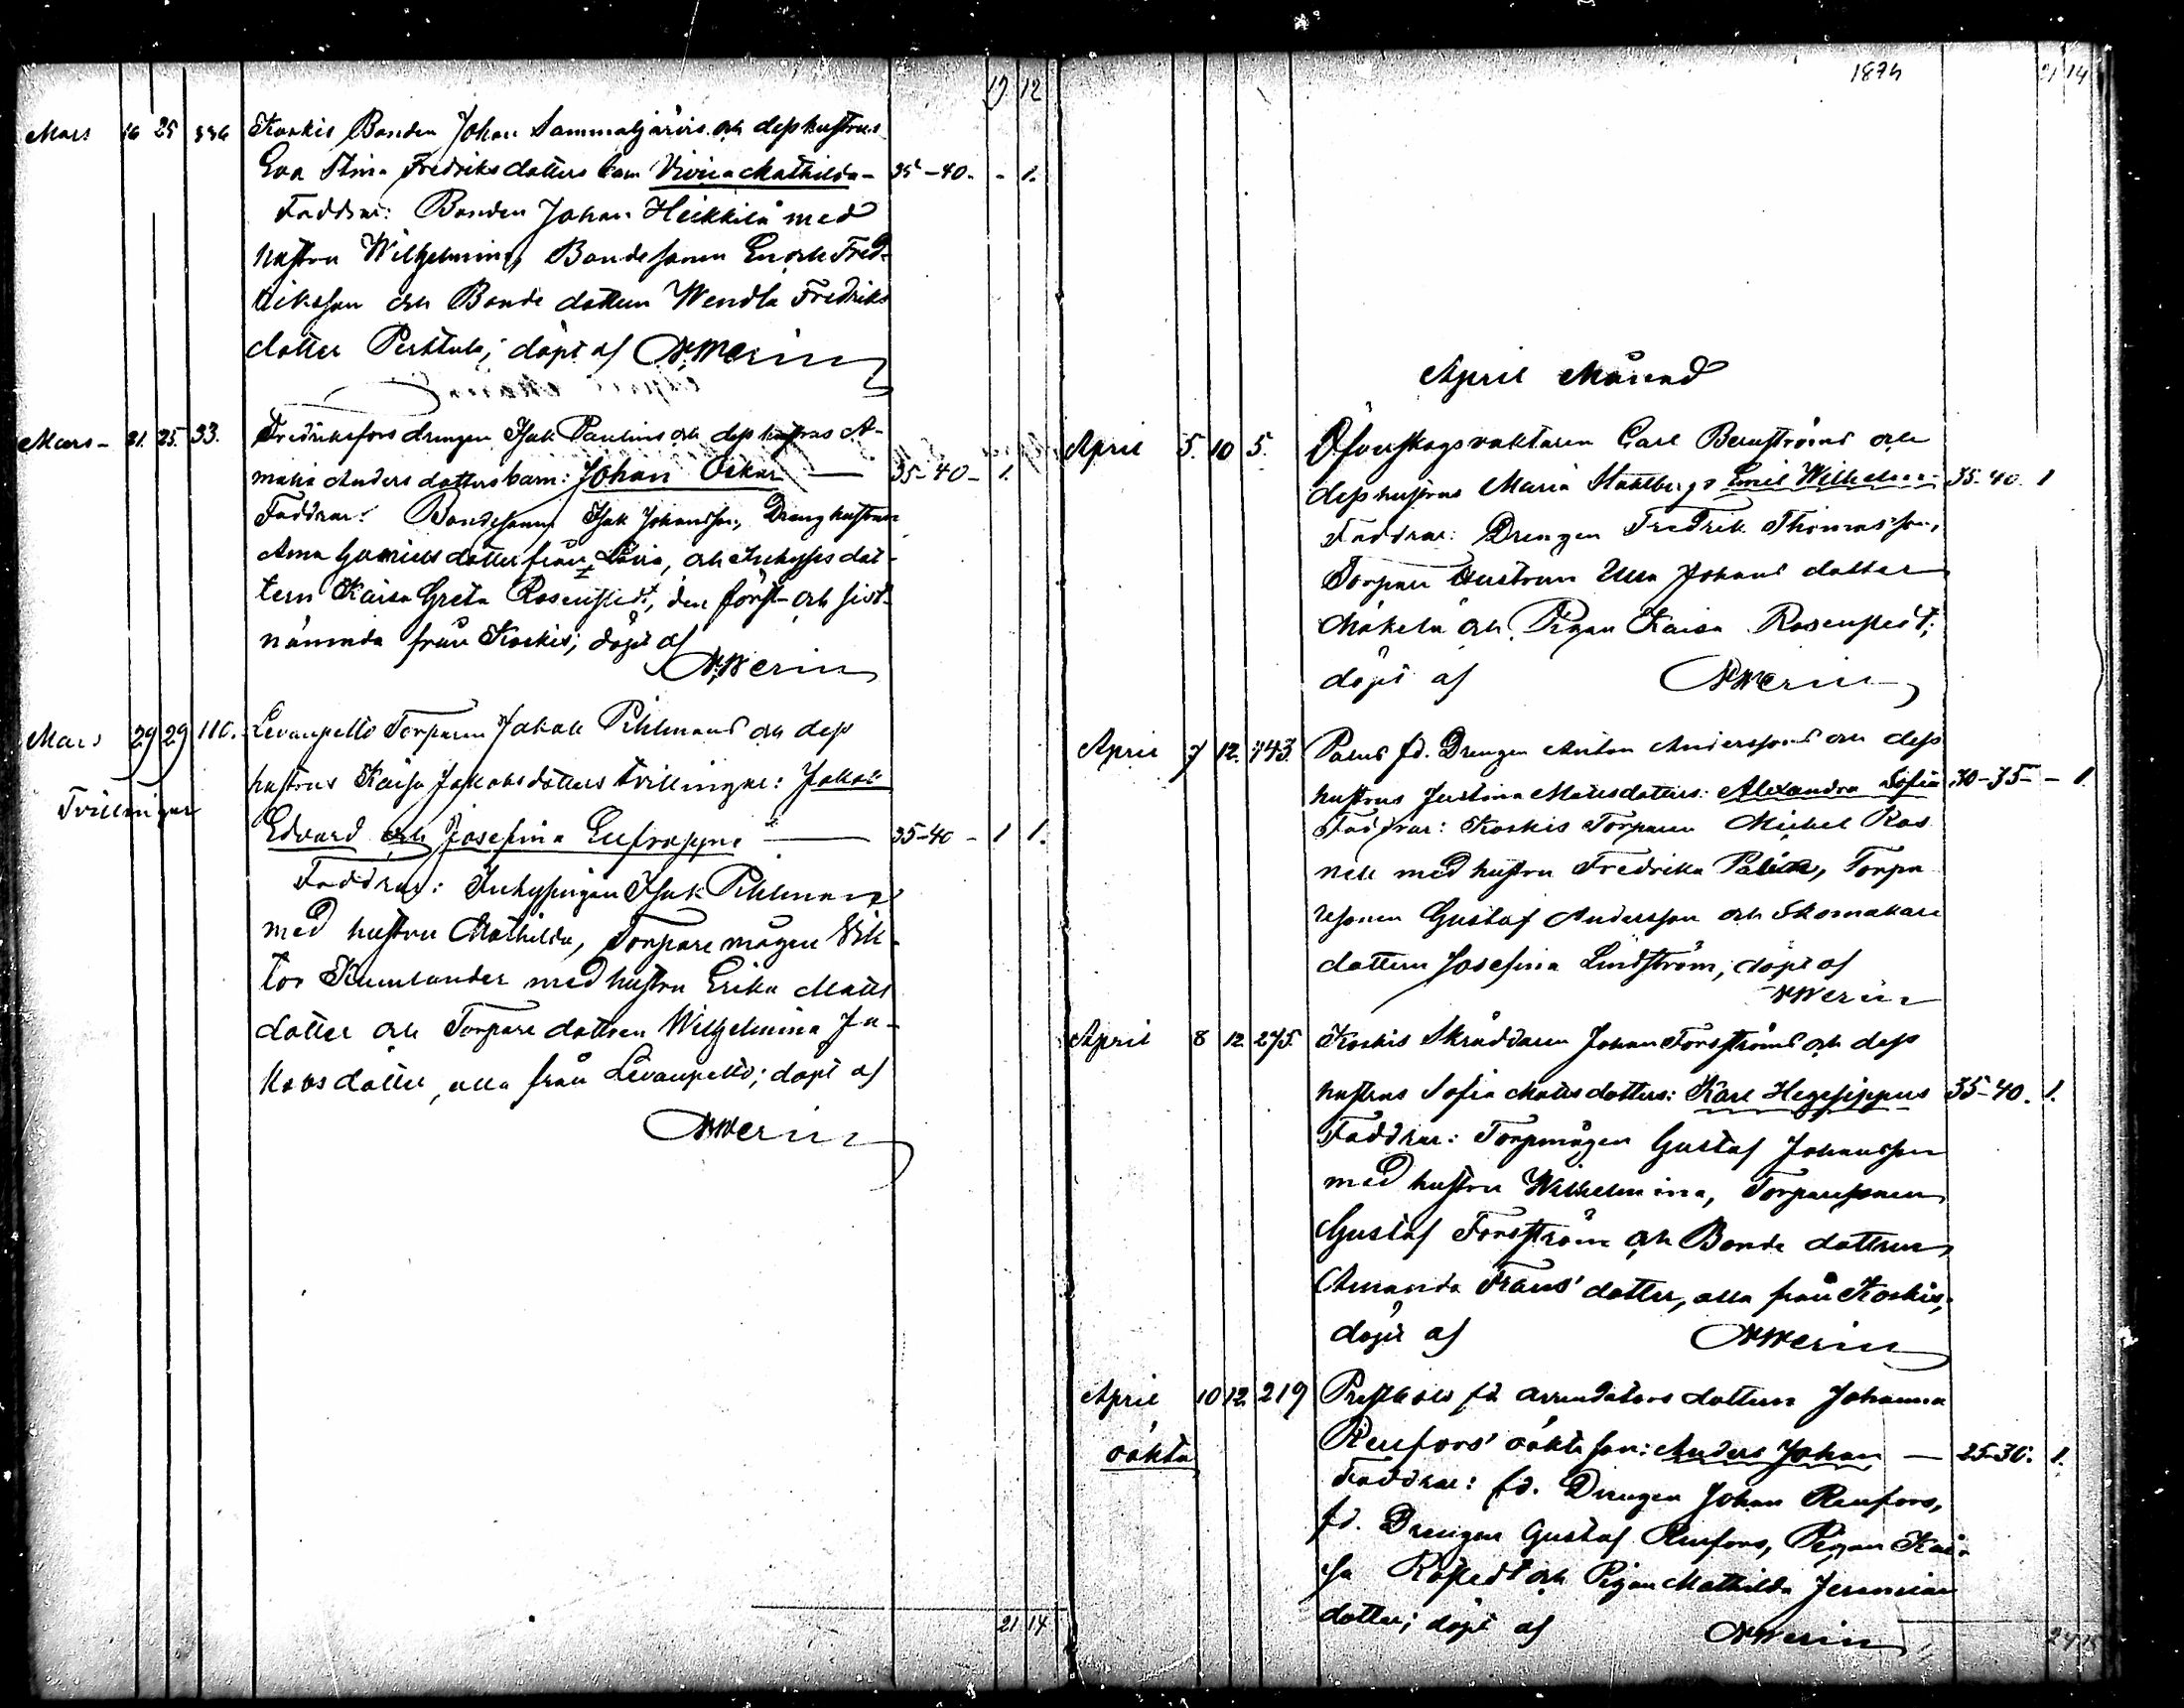 19 12
Mars 16 25 336 Koskis Bonden Johan Sammaljärvis och dess hustrus
Eva Stina Fredriksdotters barn Viviea Mathilda - 35-40. - 1.
Faddrar: Bonden Johan Heikkilä med
hustru Wilhelmina, Bondesonen Enok Fred-
riksson och Bonde dottern Wendla Fredriks
dotter Perttula; döpt af NWerin
Mars - 21. 25. 33. Fredriksfors drengen Isak Paulins och dess hustrus A-
malia Anders dotters barn: Johan Oskar — 35-40 - 1.
Faddrar: Bondesonen Isak Johansson, Dreng hustrun
Anna dotter från, och Inhyses dot-
tern Kaisa Greta Rosenstedt, den först- och sist-
nämnda från Koskis; döpt af
NWerin
Mars 29 29 110. Levanpelto Torparen Jakob Pihlmans och dess
hustrus Kaisa Jakobsdotters tvillingar: Jakob
Tvillingar
Edvard och Josefina Eufrosyne — 35-40 - 1 1.
Faddrar: Inhysingen Isak Pihlman
med hustru Mathilda, Torpare mågen Vik-
tor Kumlander med hustru Erika Matts
dotter och Torpare dottren Wilhelmina Ja-
kobsdotter, alla från Levanpelto; döpt af
NWerin
21 14
1874 21 14
April Månad
April 5. 10 5. skogsvaktaren Carl Bernströms och
dess hustrus Maria Ståhlbergs Emil Wilhelm 35-40. 1
Faddrar: Drengen Fredrik Thomasson,
Torpare hustrun Ulla Johans dotter
Mäkelä och Pigan Kaisa Rosenstedt;
döpt af NWerin
April 7 12. 143. Palus fd. Drengen Anton Anderssons och dess
hustrus Justina Mattsdotters: Alexandra Sofia 30-35 - - 1.
Faddrar: Koskis Torparen Michel Ros
nell med hustru Fredrika, Torpa
resonen Gustaf Andersson och Skomakare
dottern Josefina Lindström; döpt af
NWerin
April 8 12 275. Koskis Skräddaren Johan Forsströms och dess
hustrus Sofia Mattsdotters: Karl Hegesippus 35-40. 1.
Faddrar: Torpmågen Gustaf Johansson
med hustru Wilhelmina, Torparesonen
Gustaf Forsström och Bonde dottren
Amanda Frans' dotter, alla från Koskis;
döpt af NWerin
April 10 12. 219 Prestbols fd arrendators dottern Johanna
oäkta
Renfors' oäkta son: Anders Johan — 25-30. 1.
Faddrar: fd. Drengen Johan Renfors,
fd. Drengen Gustaf Renfors, Pigan Kai-
sa och Pigan Mathilda Jeremias
dotter; döpt af NWerin
24 15